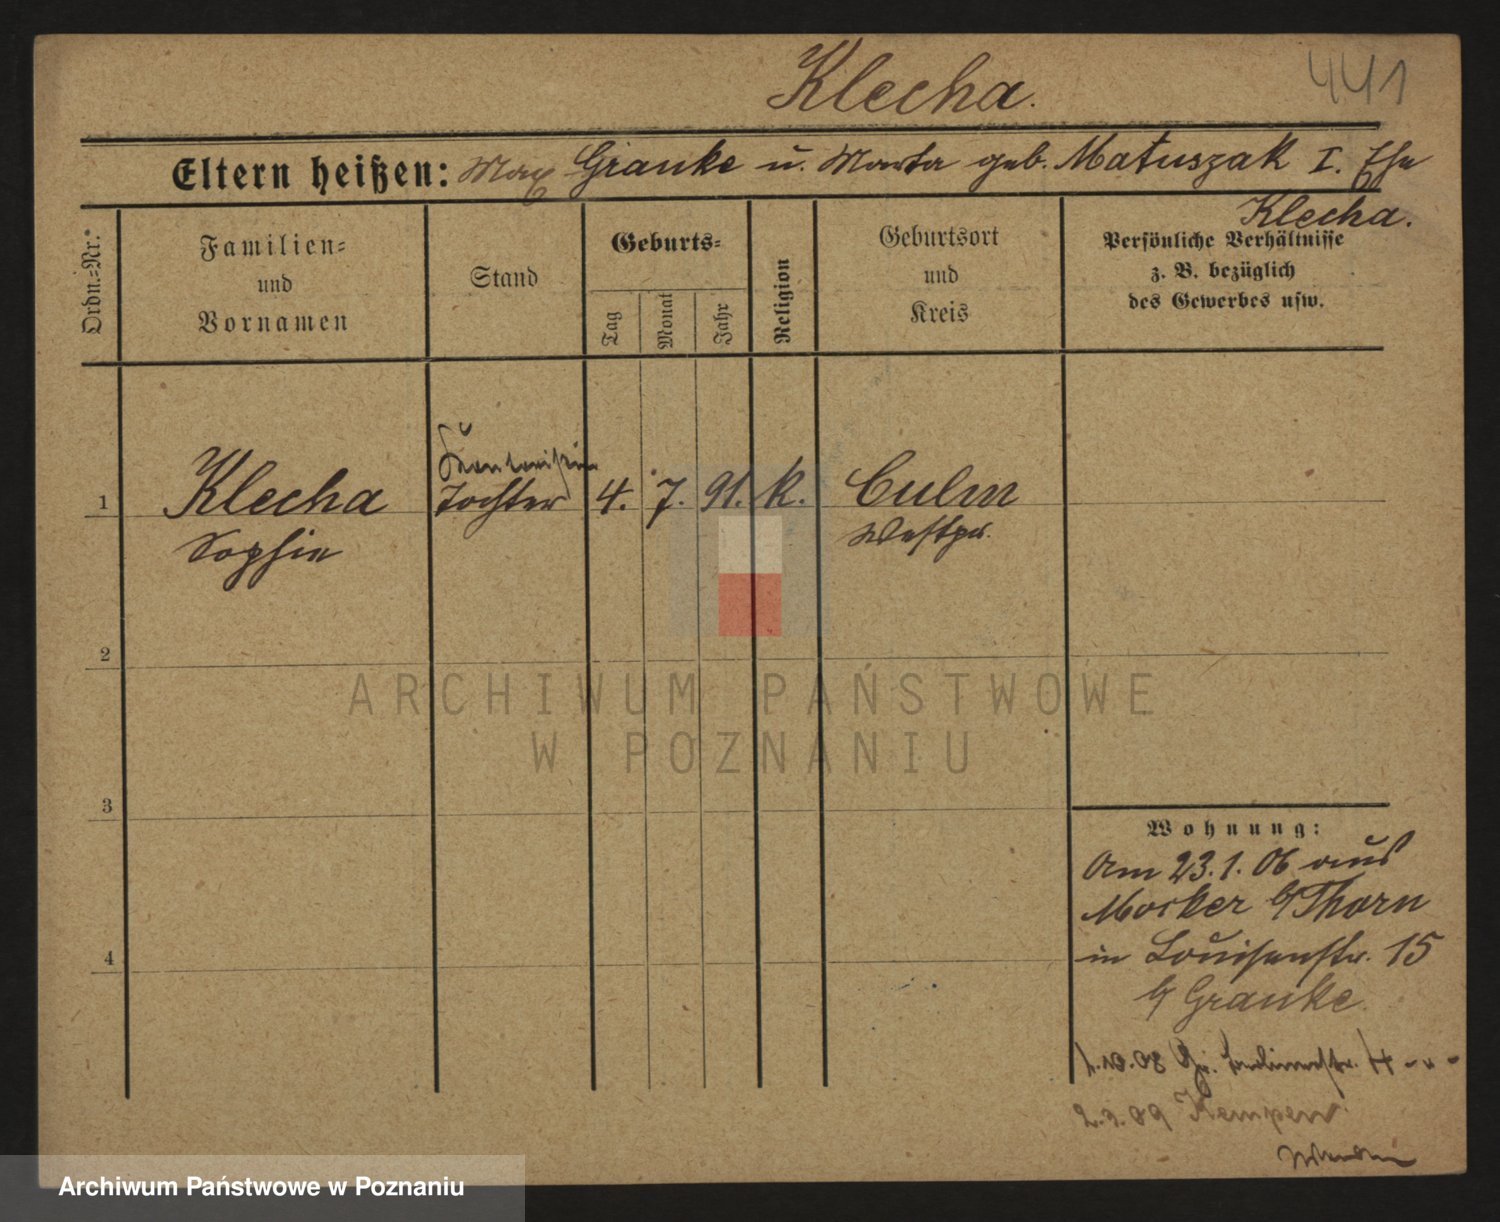 Klecha.
441
Eltern heißen: Max Granke u. Marta geb. Matuszak I. Ehe
Klecha.
Ordn.-Nr.
Familien-
und
Vornamen
Stand
Geburts-
Tag
Monat
Jahr
Religion
Geburtsort
und
Kreis
Persönliche Verhältnisse
z. B. bezüglich
des Gewerbes usw.
1
Klecha
Sophie
Kontoristin
Tochter
4.
7.
91.
k.
Culm
Westpr.
2
3
4
ARCHIWUM PAŃSTWOWE
W POZNANIU
Wohnung:
Am 23.1.06 aus
Mocker b/Thorn
in Louisenstr. 15
b/ Granke
1.10.08
2.3.09 Kempen
Archiwum Państwowe w Poznaniu